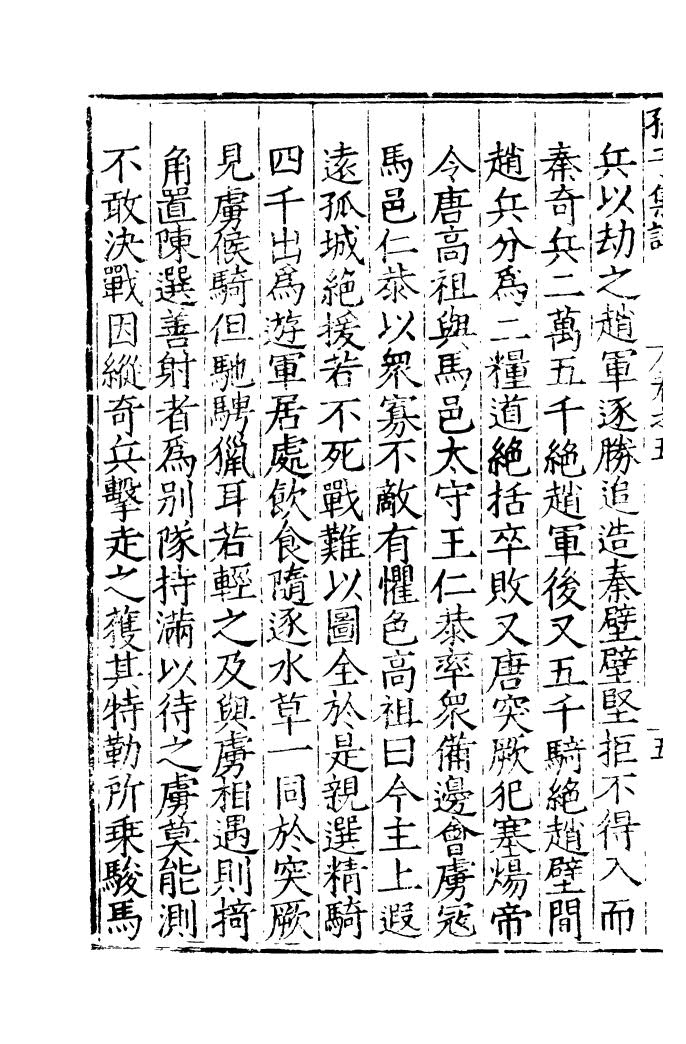 兵以劫之趙軍逐勝追造秦壁壁堅拒不得入而
秦奇兵二萬五千絶趙軍後又五千騎絶趙壁間
趙兵分爲二糧道絶括卒敗又唐突厥犯塞煬帝
令唐高祖與馬邑太守王仁恭率衆備邊會虜寇
馬邑仁恭以衆寡不敵有懼色高祖曰今主上遐
遠孤城絶援若不死戰難以圖全於是親選精騎
四千出爲遊軍居處飲食隨逐水草一同於突厥
見虜候騎但馳騁獵耳若輕之及與虜相遇則掎
角置陳選善射者爲别隊持滿以待之虜莫能測
不敢決戰因縱奇兵擊走之獲其特勒所乗駿馬